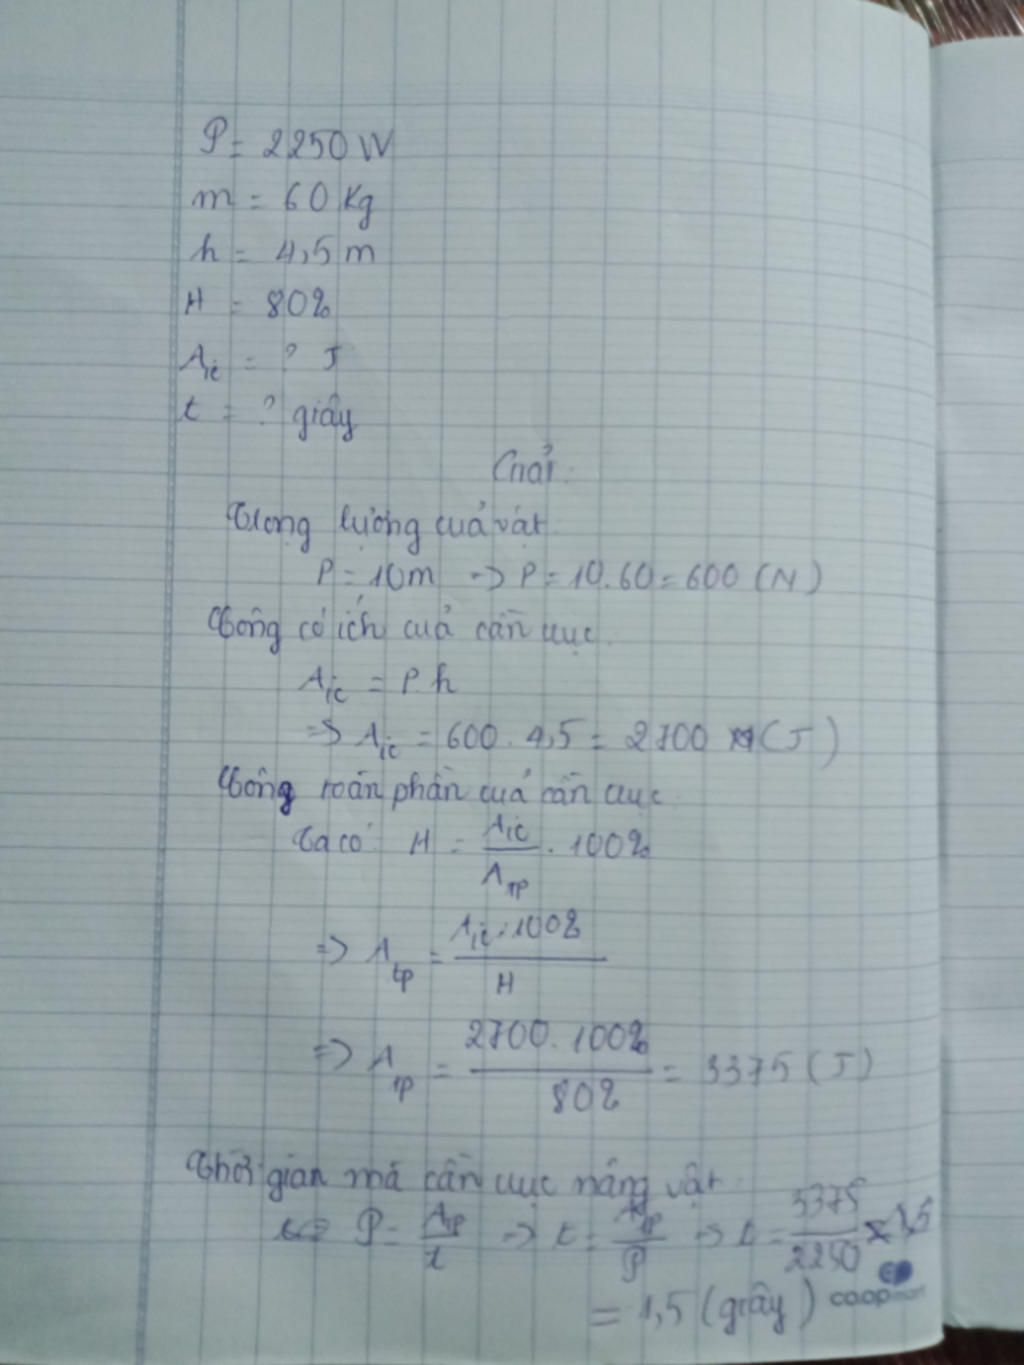 P = 2250 W
m = 60 Kg
h = 4,5 m
H = 80%
Aic = ? J
t = ? giây
Giải
Trọng lượng của vật
P = 10m -> P = 10.60 = 600 (N)
Công có ích của cần cục
Aic = P.h
=> Aic = 600 . 4,5 = 2700 (J)
Công toàn phần của cần cục
Ta có: H = Aic/Atp . 100%
=> Atp = Aic.100%/H
=> Atp = 2700.100%/80% = 3375 (J)
Thời gian mà cần cục nâng vật
P = Atp/t -> t = Atp/P -> t = 3375/2250
= 1,5 (giây)
co.opmart